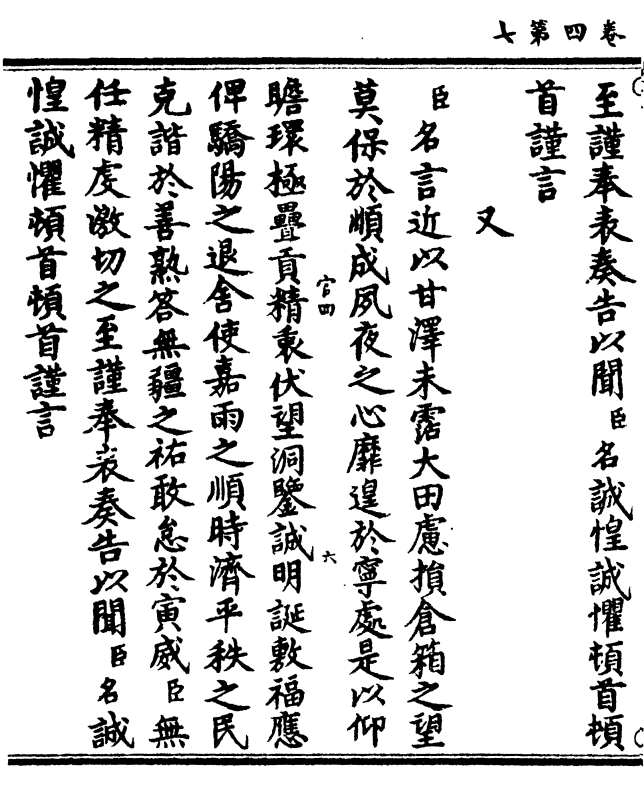 卷四第七
至謹奉表奏告以聞臣名誠惶誠懼頓首頓
首謹言
又
臣名言近以甘澤未霑大田慮損倉箱之望
莫保於順成夙夜之心靡遑於寧處是以仰
官四
六
瞻環極疊貢精衷伏望洞鑒誠明誕敷福應
俾驕陽之退舍使嘉雨之順時濟平秩之民
克諧於善熟答無疆之祐敢怠於寅威臣無
任精虔激切之至謹奉表奏告以聞臣名誠
惶誠懼頓首頓首謹言